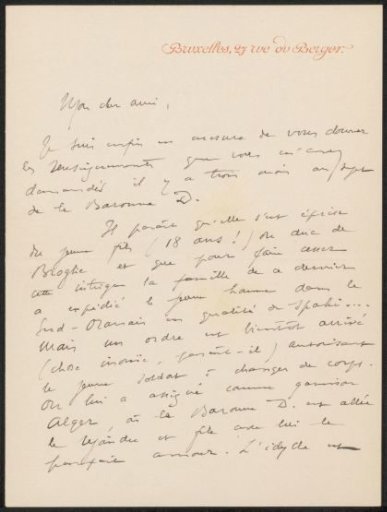 Bruxelles, 27 rue du Berger.
Mon cher ami,
Je suis enfin en mesure de vous donner
les renseignements que vous m'avez
demandés il y a trois mois au sujet
de la Baronne D.
Il paraît qu'elle s'est éprise
du jeune fils (18 ans!) du duc de
Broglie et que pour faire cesser
cette intrigue la famille de ce dernier
a expédié le jeune homme dans le
Sud-Oranais en qualité de spahi...
Mais un ordre est bientôt arrivé
(chose inouïe, paraît-il) autorisant
le jeune soldat à changer de corps.
On lui a assigné comme garnison
Alger, où la Baronne D. est allée
le rejoindre et file avec lui le
parfait amour. L'idylle est